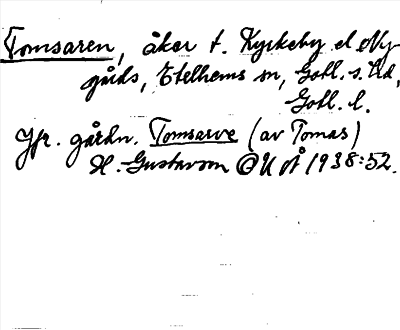 Tomsaren, åker t. Kyrkeby el. Ny-
gårds, Etelhems sn, Gotl. s. hd,
Gotl. l.
Jfr. gårdn. Tomsarve (av Tomas)
H. Gustavson OU 1938:52.